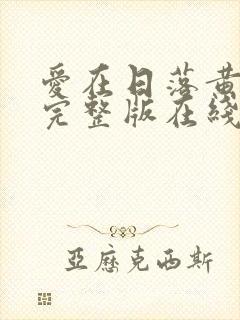 愛在日落黃
完整版在綫
亞歷克西斯